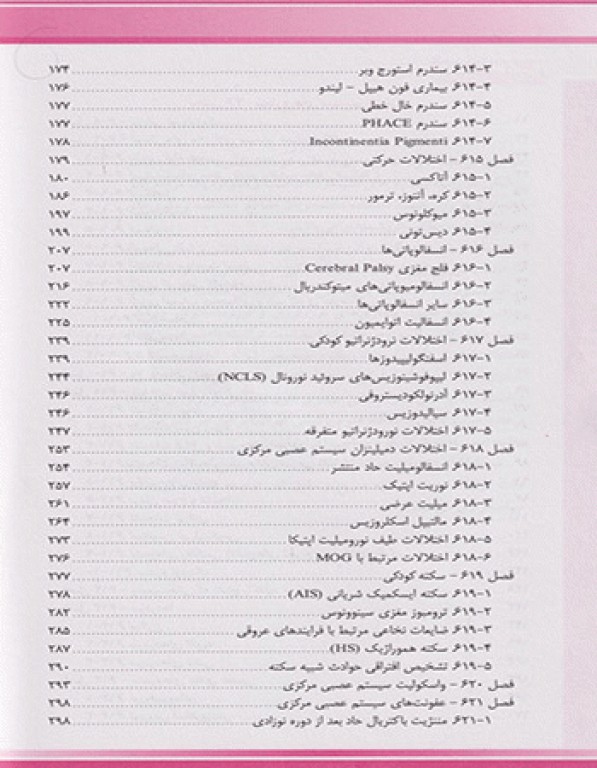 ۶۱۴-۳. سندرم استورج وبر ........ ۱۷۴
۶۱۴-۴. بیماری فون هیپل – لیندو ........ ۱۷۶
۶۱۴-۵. سندرم خال خطی ........ ۱۷۷
۶۱۴-۶. سندرم PHACE ........ ۱۷۷
۶۱۴-۷. Incontinentia Pigmenti ........ ۱۷۸
فصل ۶۱۵ – اختلالات حرکتی ........ ۱۷۹
۶۱۵-۱. آتاکسی ........ ۱۸۰
۶۱۵-۲. کره، آتتوز، ترمور ........ ۱۸۶
۶۱۵-۳. میوکلونوس ........ ۱۹۷
۶۱۵-۴. دیس‌تونی ........ ۱۹۹
فصل ۶۱۶ – انسفالوپاتی‌ها ........ ۲۰۷
۶۱۶-۱. فلج مغزی Cerebral Palsy ........ ۲۰۷
۶۱۶-۲. انسفالومیوپاتی‌های میتوکندریال ........ ۲۱۶
۶۱۶-۳. سایر انسفالوپاتی‌ها ........ ۲۲۲
۶۱۶-۴. انسفالیت اتوایمیون ........ ۲۲۵
فصل ۶۱۷ – اختلالات نرودژنراتیو کودکی ........ ۲۳۹
۶۱۷-۱. اسفنگولیپیدوزها ........ ۲۳۹
۶۱۷-۲. لیپوفوشینوزیس‌های سروئید نورونال (NCLS) ........ ۲۴۴
۶۱۷-۳. آدرنولکودیستروفی ........ ۲۴۶
۶۱۷-۴. سیالیدوزیس ........ ۲۴۶
۶۱۷-۵. اختلالات نورودژنراتیو متفرقه ........ ۲۴۷
فصل ۶۱۸ – اختلالات دمیلینزان سیستم عصبی مرکزی ........ ۲۵۳
۶۱۸-۱. انسفالومیلیت حاد منتشر ........ ۲۵۴
۶۱۸-۲. نوریت اپتیک ........ ۲۵۷
۶۱۸-۳. میلیت عرضی ........ ۲۶۱
۶۱۸-۴. مالتیپل اسکلروزیس ........ ۲۶۴
۶۱۸-۵. اختلالات طیف نورومیلیت اپتیکا ........ ۲۷۳
۶۱۸-۶. اختلالات مرتبط با MOG ........ ۲۷۶
فصل ۶۱۹ – سکته کودکی ........ ۲۷۷
۶۱۹-۱. سکته ایسکمیک شریانی (AIS) ........ ۲۷۸
۶۱۹-۲. ترومبوز مغزی سینوونوس ........ ۲۸۲
۶۱۹-۳. ضایعات نخاعی مرتبط با فرایندهای عروقی ........ ۲۸۵
۶۱۹-۴. سکته هموراژیک (HS) ........ ۲۸۷
۶۱۹-۵. تشخیص افتراقی حوادث شبیه سکته ........ ۲۹۰
فصل ۶۲۰ – واسکولیت سیستم عصبی مرکزی ........ ۲۹۳
فصل ۶۲۱ – عفونت‌های سیستم عصبی مرکزی ........ ۲۹۸
۶۲۱-۱. مننژیت باکتریال حاد بعد از دوره نوزادی ........ ۲۹۸